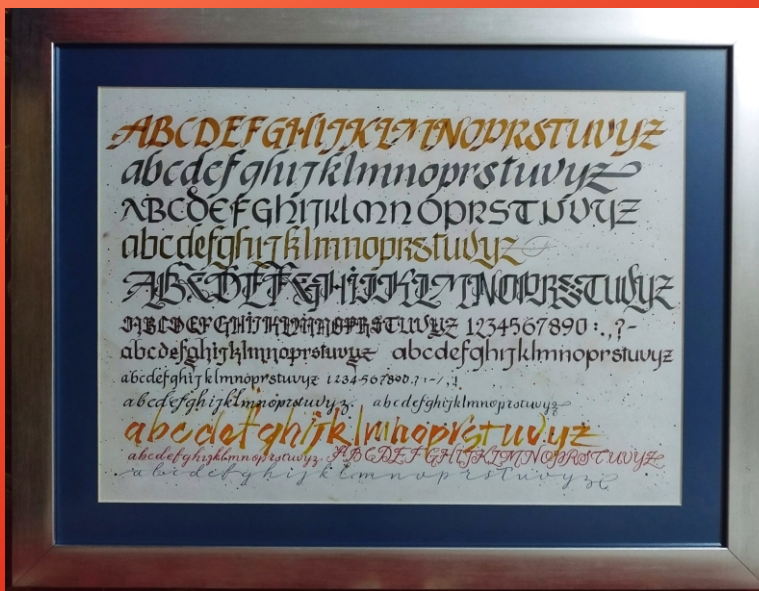 ABCDEFGHIJKLMNOPRSTUVYZ
abcdefghijklmnoprstuvyz
ABCDEFGHIJKLMNOPRSTUVYZ
abcdefghijklmnoprstuvyz
ABCDEFGHIJKLMNOPRSTUVYZ
ABCDEFGHIJKLMNOPRSTUVYZ 1234567890:.,?-
abcdefghijklmnoprstuvyz abcdefghijklmnoprstuvyz
abcdefghijklmnoprstuvyz 1234567890.?:-/,!
abcdefghijklmnoprstuvyz. abcdefghijklmnoprstuvyz
abcdefghijklmnoprstuvyz
abcdefghijklmnoprstuvyz. ABCDEFGHIJKLMNOPRSTUVYZ
abcdefghijklmnoprstuvyz